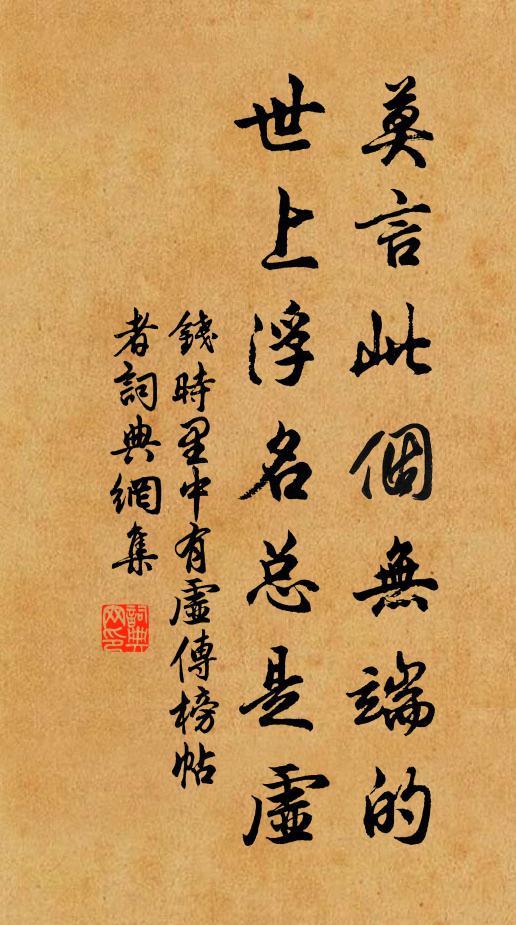 莫言此個無端的
世上浮名总是虛
錢時里中有虛傳榜帖
者詞典網集
詞典网印